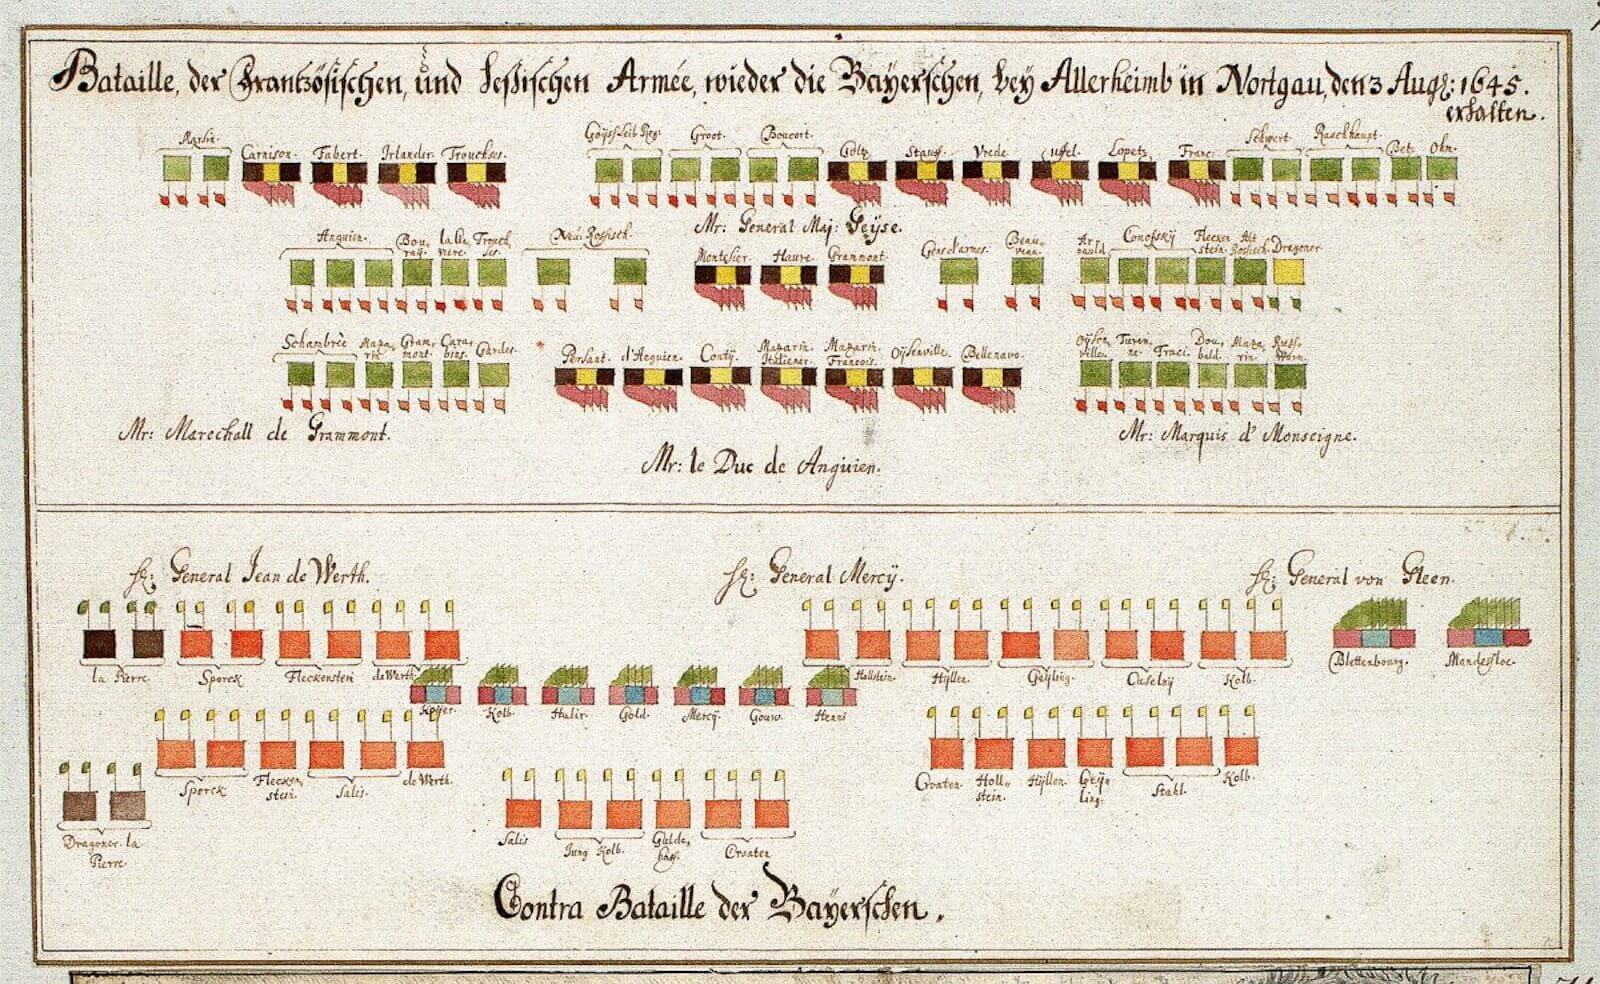 Bataille, der Frantzösischen, und Hessischen Armée, wieder die Bayerschen, bey Allerheimb in Nortgau, den 3 Aug: 1645.
erhalten.
Marsin. Carnison. Fabert. Irlander. Trouchses. Geyss Leib Reg: Groot. Boucort. Goltz Stauff. Vrede. Uffel. Lopetz. Franc: Schwert. Raackhaupt. Betz Ohn.
Mr: General Maj: Geÿse.
Anguien. Neu: Rossisch. Montesier. Haure. Grammont. Gens d'armes. Beau, veau. Ar, nauld Conofskÿ Flecken stein. Alt Rossisch. Dragoner
Schambrèe Maza, rin. Gram, mont. Cara, bins. Gardes. Persant. d'Anguien. Contÿ. Mazarin. Italiener. Mazarin. Francois. Oysenville. Bellenave. Oyson, villes. Turen, ne. Traci. Dou, bald. Maza, rin.
Mr: Marechall de Grammont.
Mr: Marquis d' Monseigne.
Mr: le Duc de Anguien.
H: General Jean de Werth.
H: General Mercÿ.
H: General von Gleen.
la Pierre. Sporck Fleckenstein de Werth. Hollstein. Hÿller. Geÿling. Caselaÿ Kolb. Blettenbourg. Mandesloe.
Kolb. Halir. Gold. Mercÿ. Gouw. Henni
Sporck Flecken, stein. Salis. de Werth. Croaten Holl, stein. Hÿller. Geÿ, ling. Stahl. Kolb.
Dragoner. la Pierre.
Salis Jung Kolb. Croaten
Contra Bataille der Bayerschen.